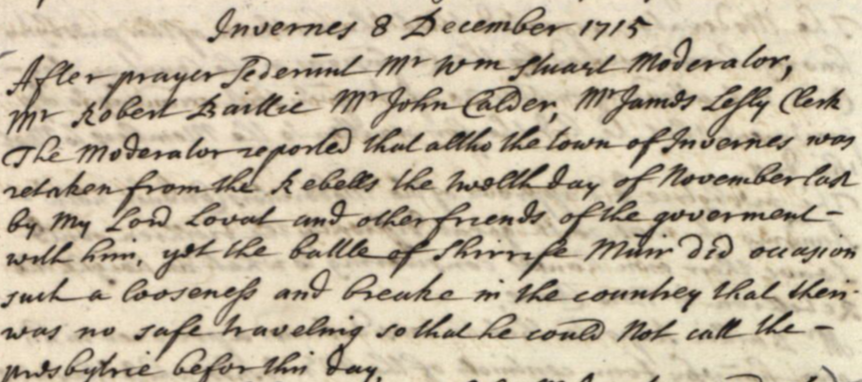 Invernes 8 December 1715
After prayer Sederunt Mr Wm Stuart Moderator,
Mr Robert Baillie Mr John Calder, Mr James Lesly Clerk
The Moderator reported that altho the town of Invernes was
retaken from the Rebells the twelth day of November last
by My Lord Lovat and other friends of the goverment -
with him, yet the battle of Shirrife Muir did occasion
such a looseness and breake in the countrey that ther
was no safe traveling so that he could Not call the -
presbytrie befor this day